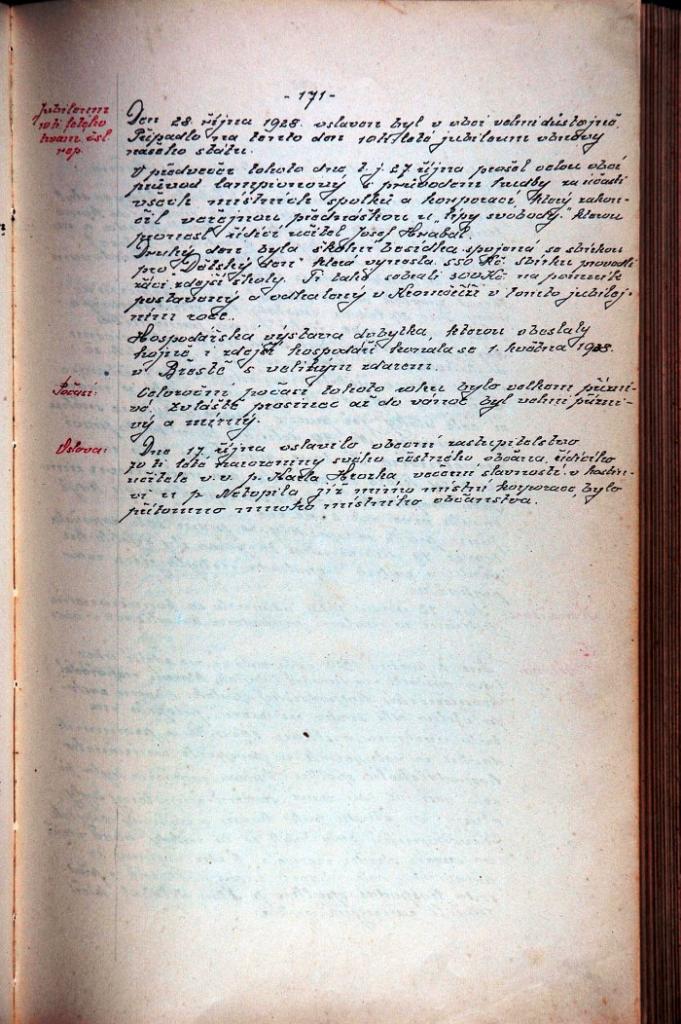 - 171 -
Jubileum
10ti letého
trvání čsl.
rep.
Den 28. října 1928. oslaven byl v obci velmi důstojně.
Připadlo na tento den 10tileté jubileum obnovy
našeho státu.
V předvečer tohoto dne, t. j. 27 října prošel celou obcí
průvod lampionový s průvodem hudby za účasti
všech místních spolků a korporací, který zakon-
čil veřejnou přednáškou u „lípy svobody" kterou
pronesl řídící učitel Josef Hrabal.
Druhý den byla školní besídka spojená se sbírkou
pro „Dětský den" která vynesla 550 Kč sbírku provedli
žáci zdejší školy. Ti také sebrali 300Kč na pomník
postavený a odhalený v Kroměříži v tomto jubilej-
ním roce.
Hospodářská výstava dobytka, kterou obeslaly
hojně i zdejší hospodáři konala se 1. května 1928.
v Břestě s velikým zdarem.
Počasí:
Celoroční počasí tohoto roku bylo celkem přízni-
vé, zvláště prosinec až do vánoc byl velmi přízni-
vý a mírný.
Oslava:
Dne 17. října oslavilo obecní zastupitelstvo
70ti leté narozeniny svého čestného občana, řídícího
učitele v. v. p. Karla večerní slavností v hostin-
ci u p. Netopila, jíž mimo místní korporace, bylo
přítomno mnoho místního občanstva.